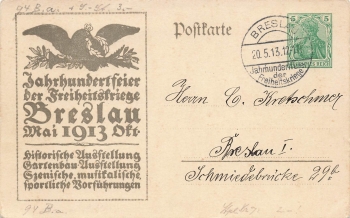 94 B.a.
Postkarte
Jahrhundertfeier
der Freiheitskriege
Breslau
Mai 1913 Okt.
Historische Ausstellung
Gartenbau Ausstellung
Szenische, musikalische,
sportliche Vorführungen
BRESLAU
20.5.13.12
Jahrhundertfeier
der
Freiheitskriege
5 5
Herrn C. Kretschmer
Breslau I.
Schmiedebrücke 29b
94 B.a